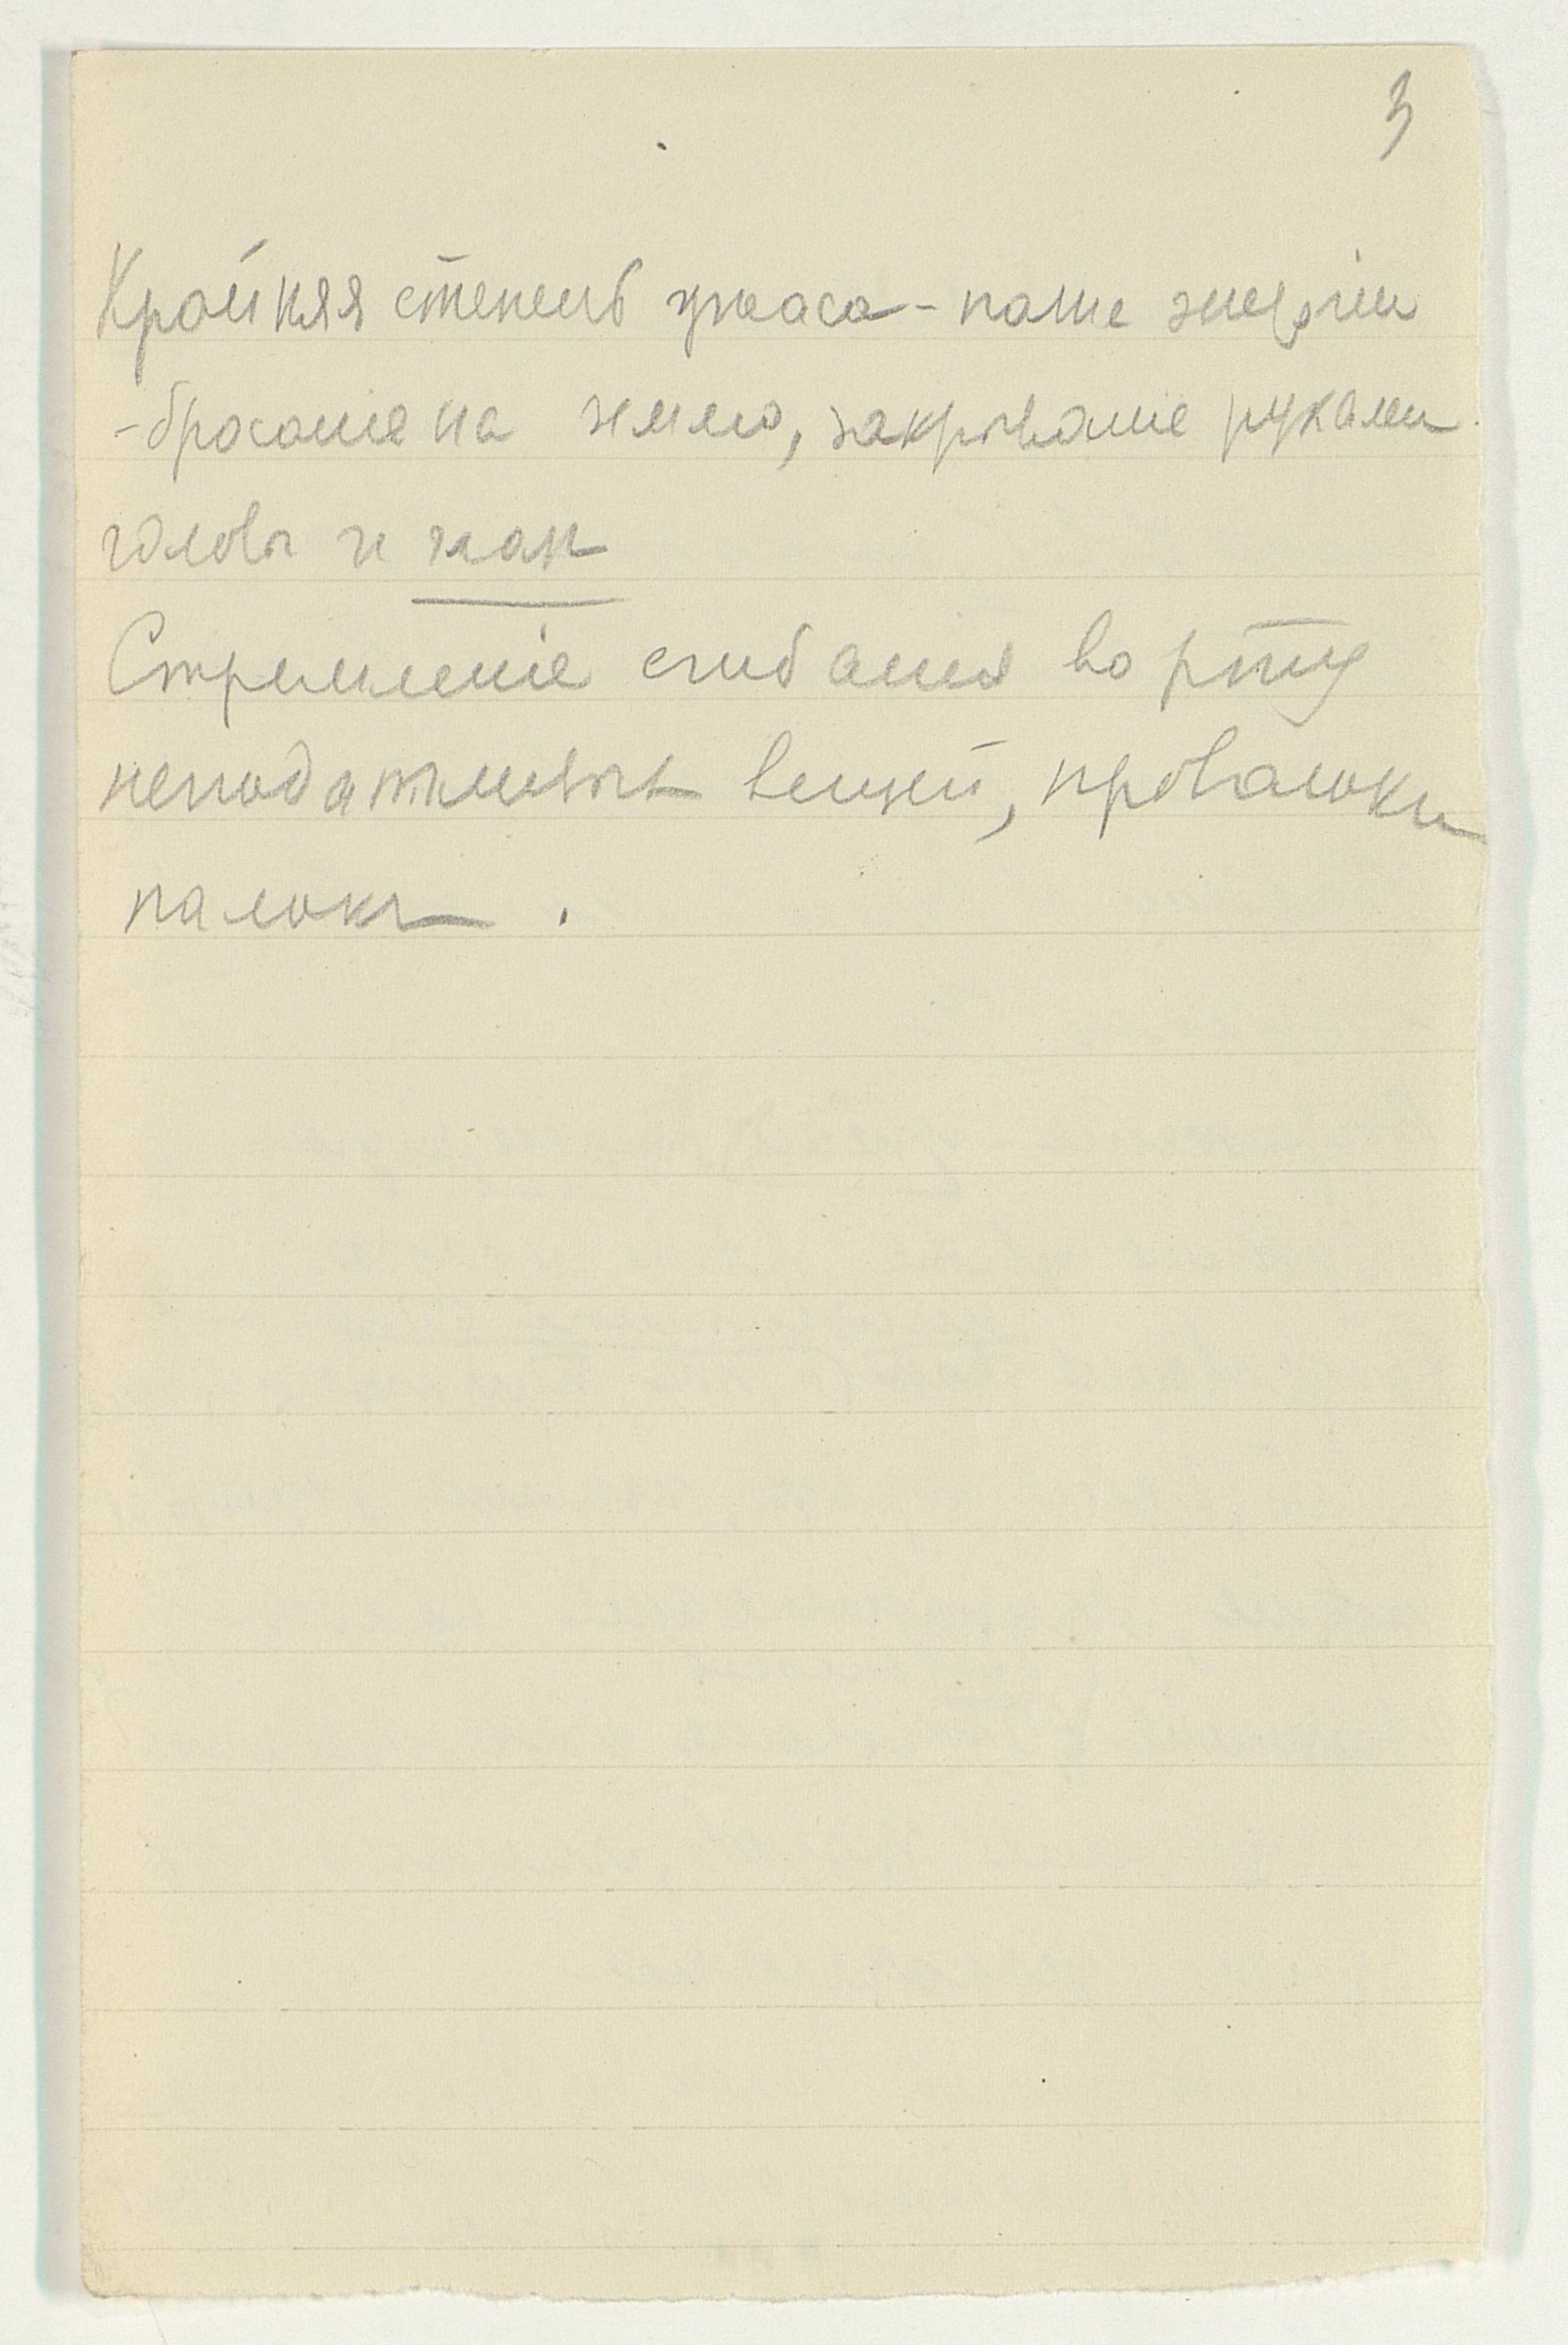 3
Крайняя степень ужаса –  энергіи
– бросаніе на землю, закрываніе руками
головы и глаз
Стремленіе сгибания во рту
неподатливых вещей, проволоки
палоки .